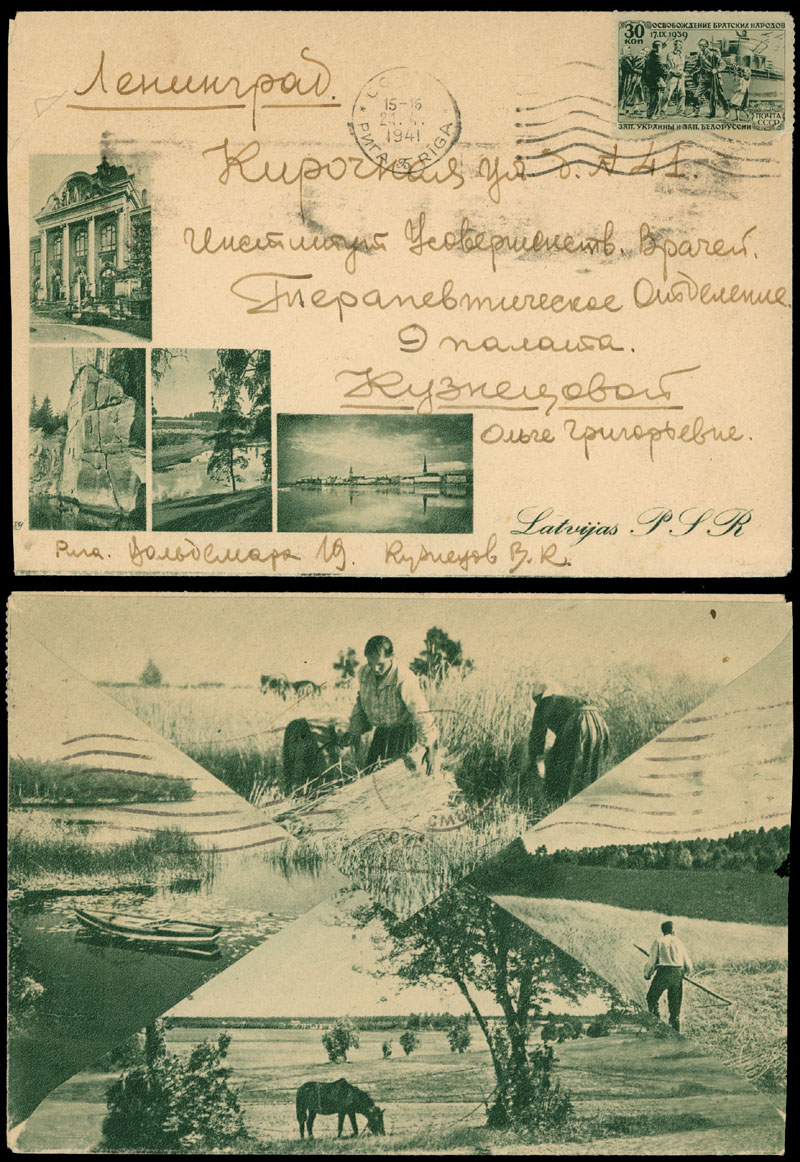 ОСВОБОЖДЕНИЕ БРАТСКИХ НАРОДОВ
30 КОП
17.IX.1939
ПОЧТА СССР
ЗАП. УКРАИНЫ и ЗАП. БЕЛОРУССИИ
Ленинград.
15-16
1941
РИГА RIGA
Кирочная ул. д. N 41.
Институт Усовершенств. Врачей.
Терапевтическое Отделение.
9 палата.
Кузнецовой
Ольге Григорьевне.
Latvijas PSR
Рига. Вольдемара 19. Кузнецов В. К.